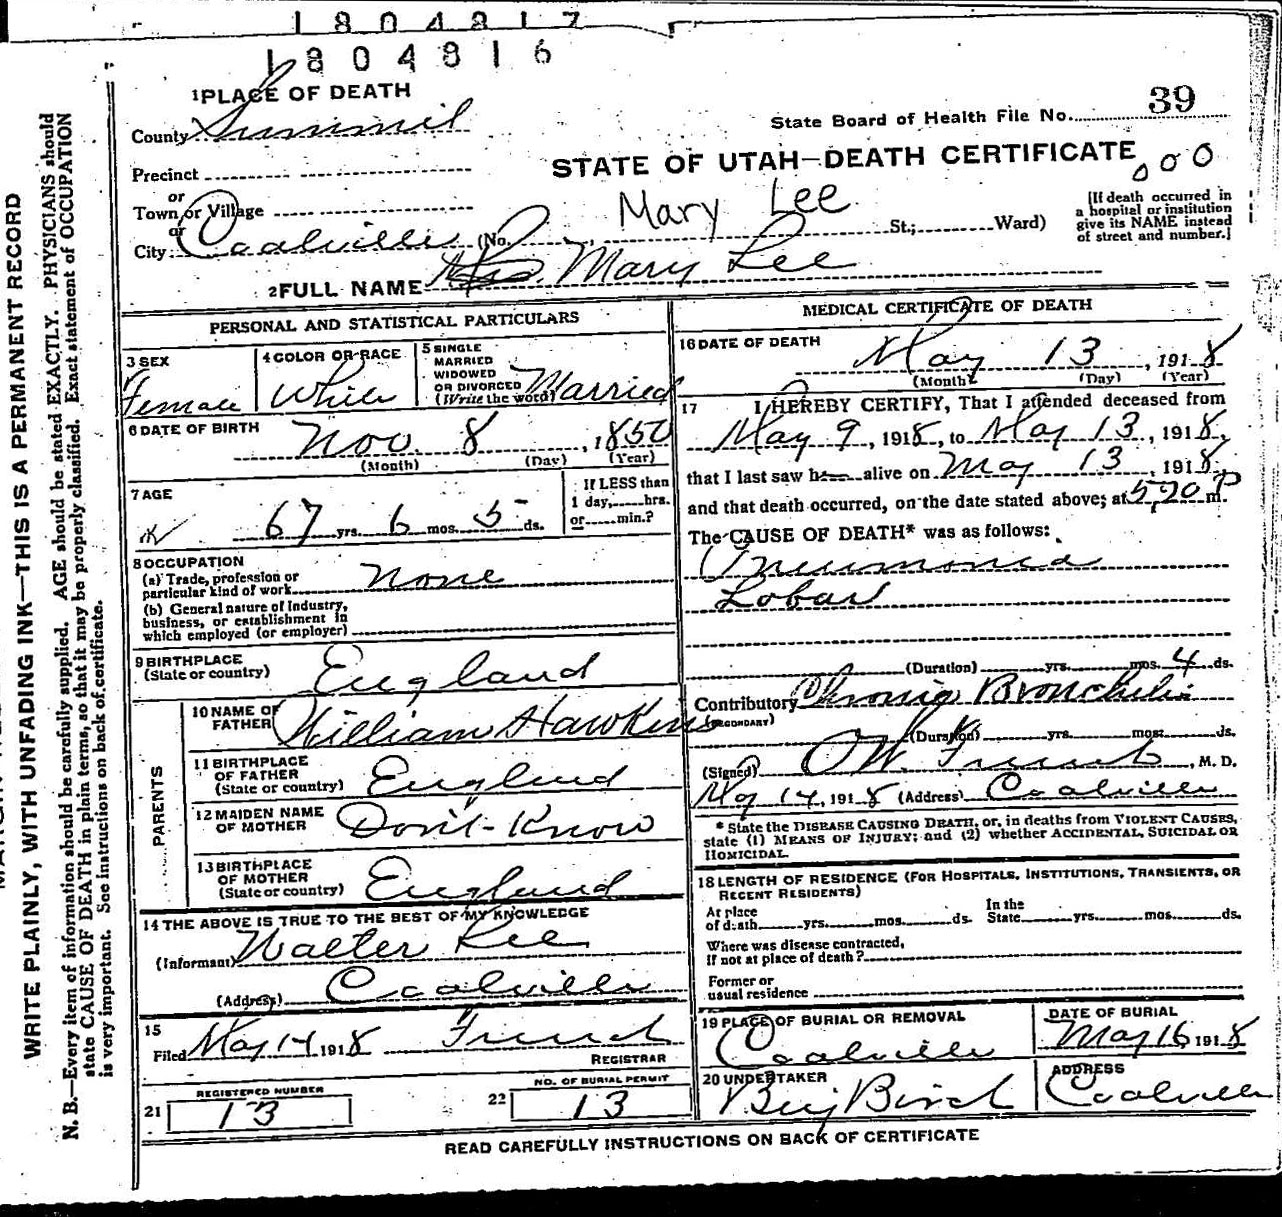 1804817
1804816
1 PLACE OF DEATH
County Summit
State Board of Health File No. 39
STATE OF UTAH—DEATH CERTIFICATE
000
Precinct
or
Town or Village
or
City Coalville (No. St.; Ward)
Mary Lee
[If death occurred in
a hospital or institution
give its NAME instead
of street and number.]
2 FULL NAME Mrs. Mary Lee
PERSONAL AND STATISTICAL PARTICULARS
3 SEX
Female
4 COLOR OR RACE
White
5 SINGLE
MARRIED
WIDOWED
OR DIVORCED
(Write the word) Married
6 DATE OF BIRTH
Nov. 8, 1850
(Month) (Day) (Year)
7 AGE
67 yrs. 6 mos. 5 ds.
If LESS than
1 day, hrs.
or min.?
8 OCCUPATION
(a) Trade, profession or
particular kind of work none
(b) General nature of Industry,
business, or establishment in
which employed (or employer)
9 BIRTHPLACE
(State or country) England
PARENTS
10 NAME OF
FATHER William Hawkins
11 BIRTHPLACE
OF FATHER
(State or country) England
12 MAIDEN NAME
OF MOTHER Don't-Know
13 BIRTHPLACE
OF MOTHER
(State or country) England
14 THE ABOVE IS TRUE TO THE BEST OF MY KNOWLEDGE
(Informant) Walter Lee
(Address) Coalville
15
Filed May 14 1918 French
REGISTRAR
21 REGISTERED NUMBER
13
22 NO. OF BURIAL PERMIT
13
MEDICAL CERTIFICATE OF DEATH
16 DATE OF DEATH
May 13, 1918
(Month) (Day) (Year)
17 I HEREBY CERTIFY, That I attended deceased from
May 9, 1918, to May 13, 1918,
that I last saw her alive on May 13, 1918,
and that death occurred, on the date stated above; at 5,20 P m.
The CAUSE OF DEATH* was as follows:
Pneumonia
Lobar
(Duration) yrs. mos. 4 ds.
Contributory Chronic Bronchitis
(SECONDARY)
(Duration) yrs. mos. ds.
(Signed) French, M. D.
May 14, 1918 (Address) Coalville
* State the DISEASE CAUSING DEATH, or, in deaths from VIOLENT CAUSES,
state (1) MEANS OF INJURY; and (2) whether ACCIDENTAL, SUICIDAL OR
HOMICIDAL.
18 LENGTH OF RESIDENCE (FOR HOSPITALS, INSTITUTIONS, TRANSIENTS, OR
RECENT RESIDENTS)
At place
of death yrs. mos. ds.
In the
State yrs. mos. ds.
Where was disease contracted,
If not at place of death?
Former or
usual residence
19 PLACE OF BURIAL OR REMOVAL
Coalville
DATE OF BURIAL
May 16, 1918
20 UNDERTAKER
Benj Birch
ADDRESS
Coalville
READ CAREFULLY INSTRUCTIONS ON BACK OF CERTIFICATE
WRITE PLAINLY, WITH UNFADING INK—THIS IS A PERMANENT RECORD
N. B.—Every item of information should be carefully supplied. AGE should be stated EXACTLY. PHYSICIANS should
state CAUSE OF DEATH in plain terms, so that it may be properly classified. Exact statement of OCCUPATION
is very important. See instructions on back of certificate.